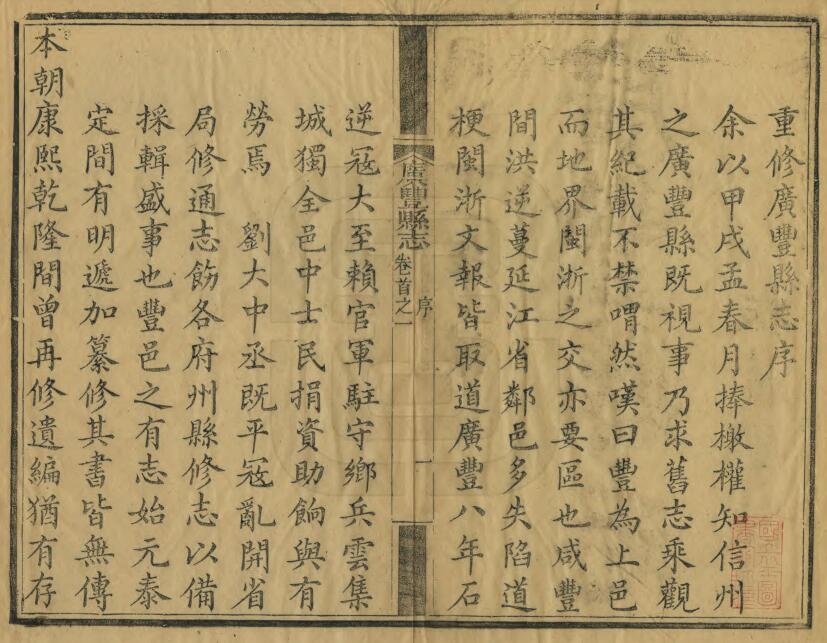 重修廣豐縣志序
余以甲戌孟春月捧檄權知信州
之廣豐縣既視事乃求舊志乘觀
其紀載不禁喟然嘆曰豐為上邑
而地界閩浙之交亦要區也咸豐
間洪逆蔓延江省鄰邑多失陷道
梗閩浙文報皆取道廣豐八年石
廣豐縣志
卷首之一
序
一
逆寇大至賴官軍駐守鄉兵雲集
城獨全邑中士民捐資助餉與有
勞焉　劉大中丞既平寇亂開省
局修通志飭各府州縣修志以備
採輯盛事也豐邑之有志始元泰
定間有明遞加纂修其書皆無傳
本朝康熙乾隆間曾再修遺編猶有存